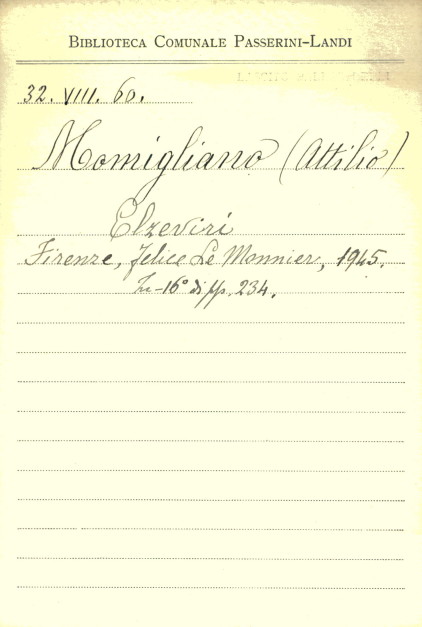 BIBLIOTECA COMUNALE PASSERINI-LANDI
32. VIII. 60.
Momigliano (Attilio)
Elzeviri
Firenze, Felice Le Monnier, 1945.
In-16° di pp. 234.